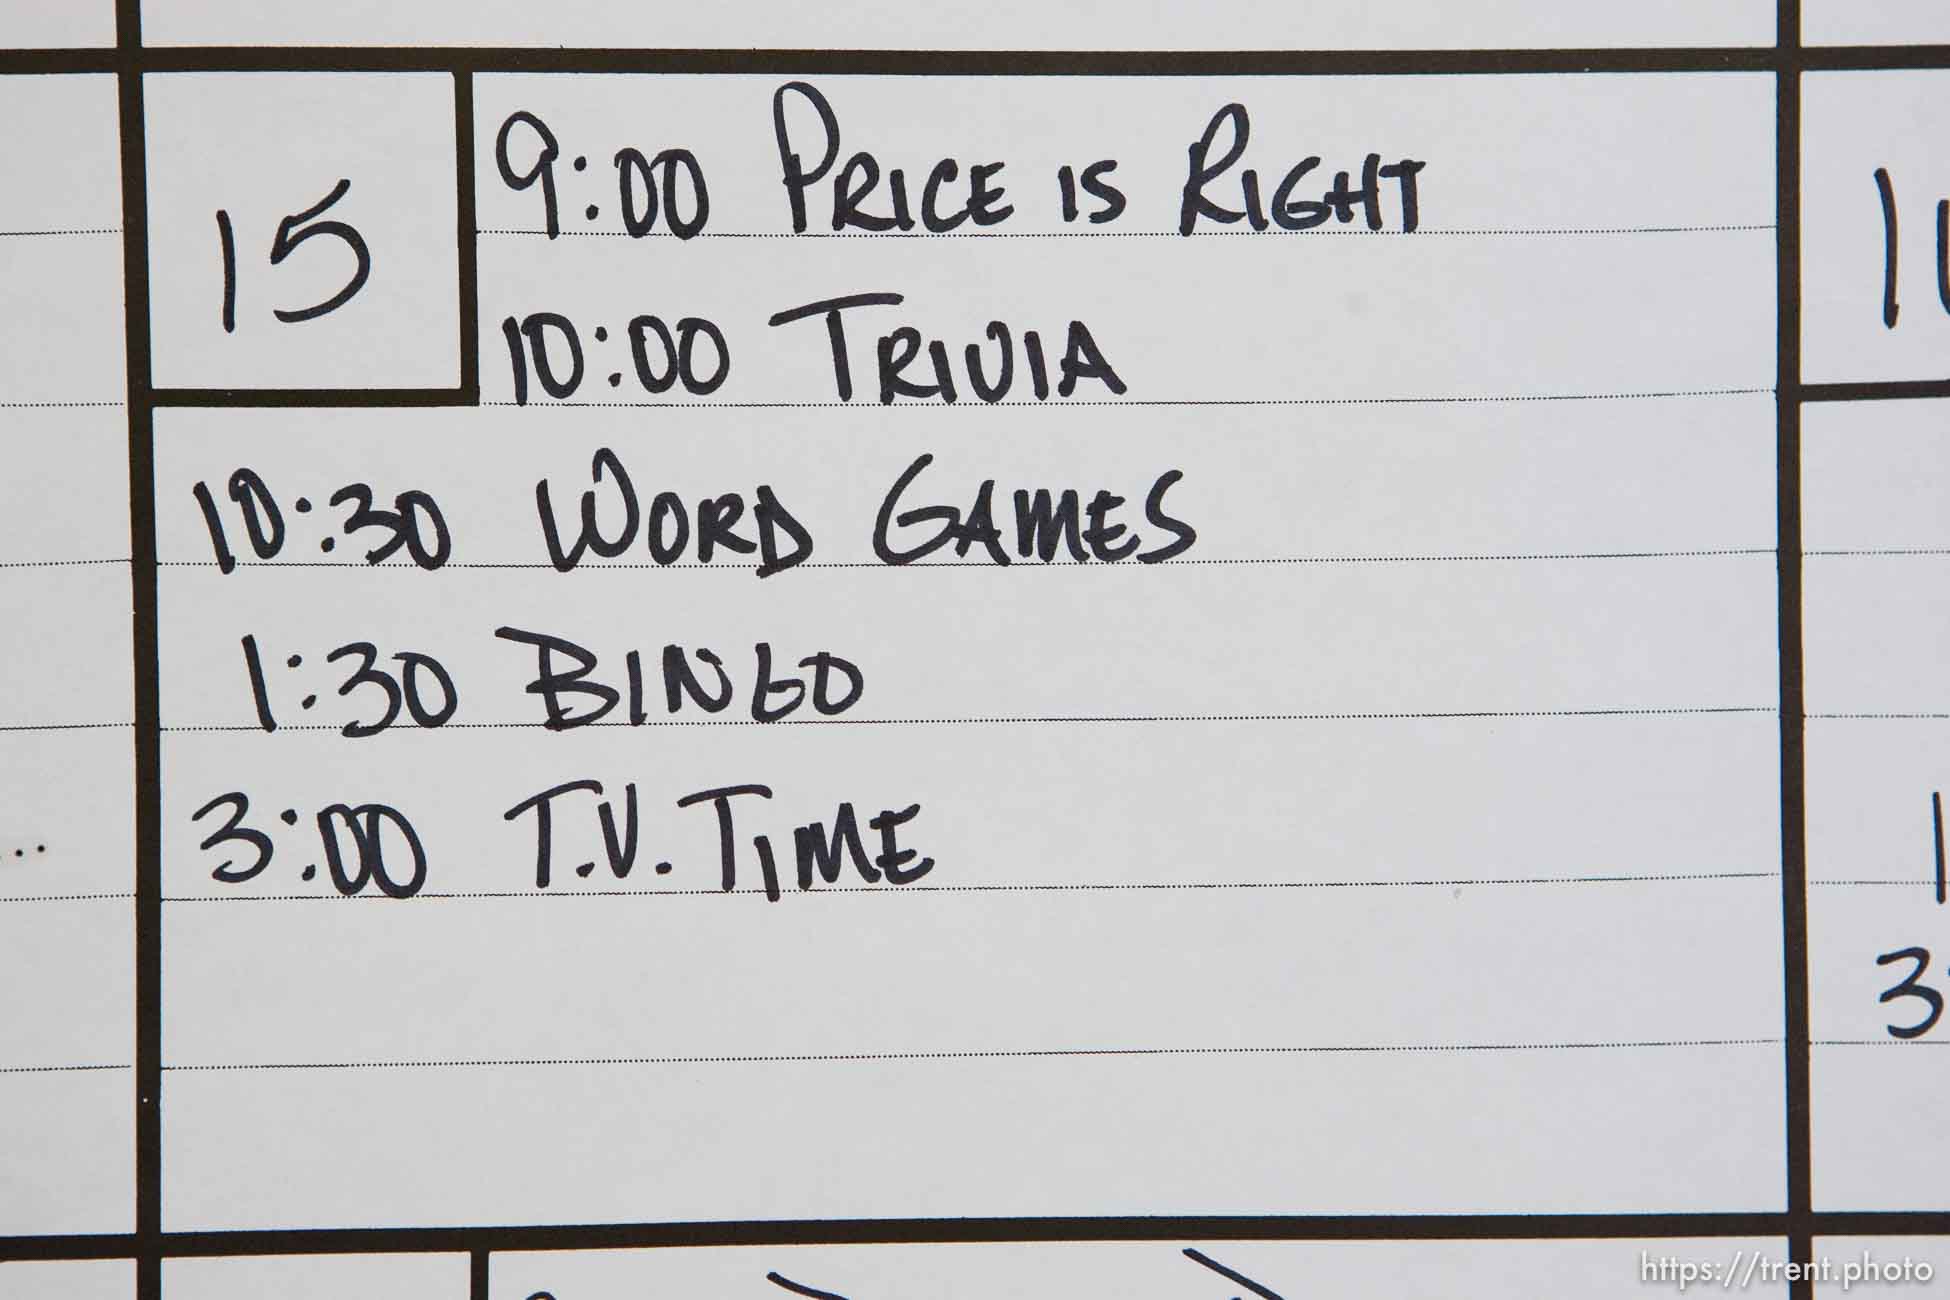 15
9:00 PRICE IS RIGHT
10:00 TRIVIA
10:30 WORD GAMES
1:30 BINGO
3:00 T.V. TIME
https://trent.photo